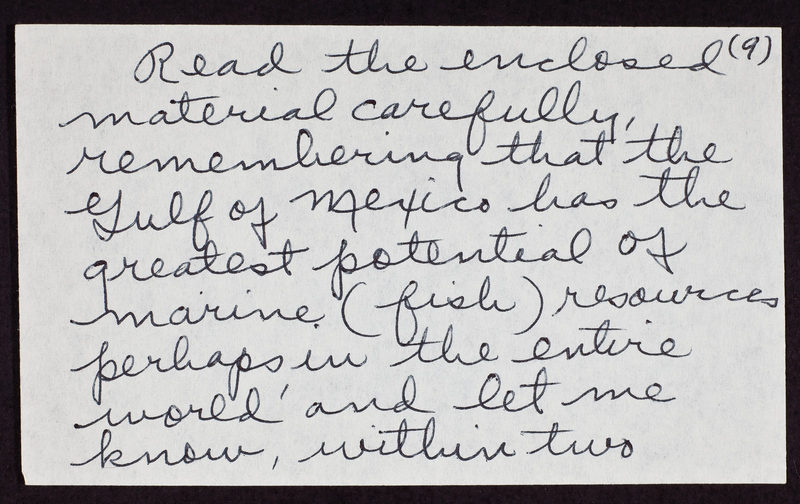 Read the enclosed (9)
material carefully,
remembering that the
Gulf of Mexico has the
greatest potential of
marine (fish) resources
perhaps in the entire
world, and let me
know, within two